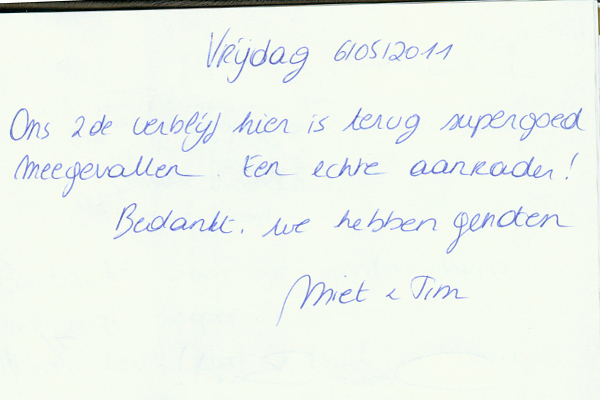 Vrijdag 6/05/2011
Ons 2de verblijf hier is terug supergoed
meegevallen. Een echte aanrader!
Bedankt, we hebben genoten
Miet & Tim